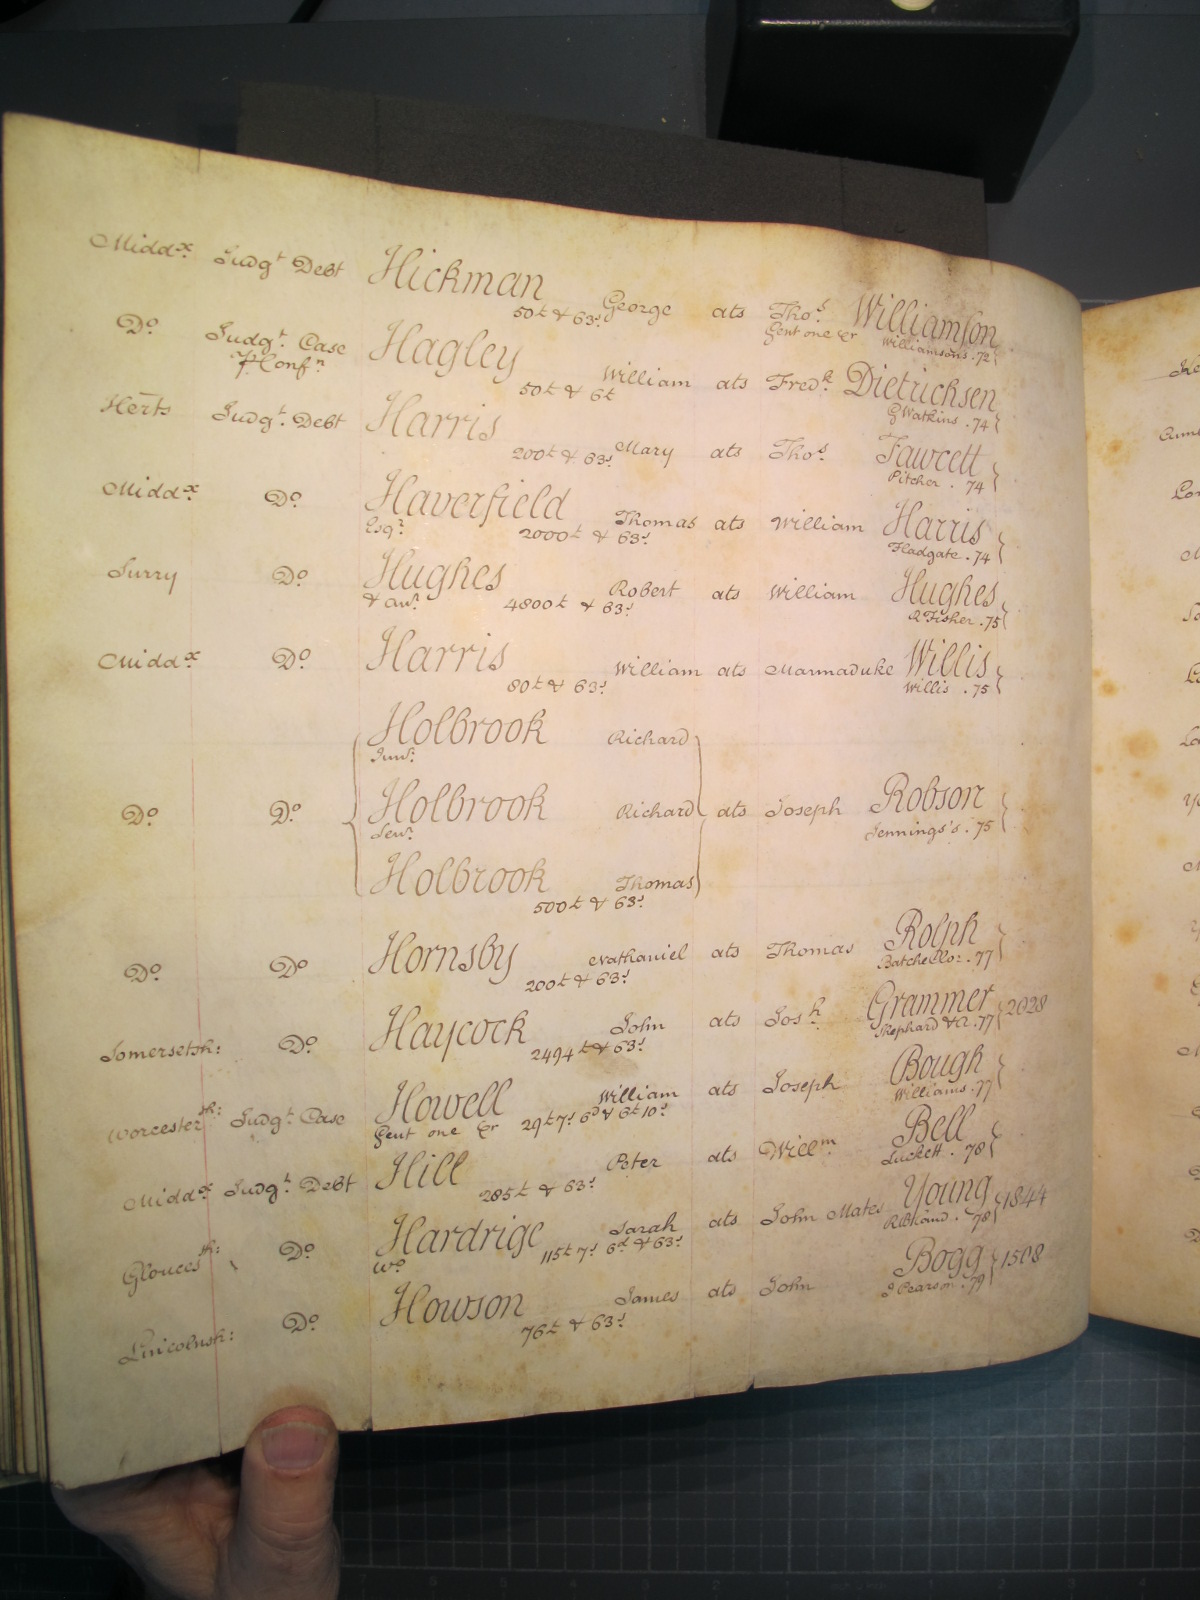 Midd.x Judg.t Debt Hickman George ats Tho.s Williamson
50£ & 63.s Gent one &r Williamsons . 72
D.o Judg.t Case Hagley William ats Fred.k Dietrichsen
P Conf.n 50£ & 6£ G Watkins . 74
Herts Judg.t Debt Harris Mary ats Tho.s Fawcett
200£ & 63.s Pitcher . 74
Midd.x D.o Haverfield Thomas ats William Harris
Esq.r 2000£ & 63.s Fladgate . 74
Surry D.o Hughes Robert ats William Hughes
& an.r 4800£ & 63.s R Fisher . 75
Midd.x D.o Harris William ats Marmaduke Willis
80£ & 63.s Willis . 75
Holbrook Richard
Jun.r
D.o D.o Holbrook Richard ats Joseph Robson
Sen.r Jennings's . 75
Holbrook Thomas
500£ & 63.s
D.o D.o Hornsby Nathaniel ats Thomas Rolph
200£ & 63.s Batchellor . 77
Somersetsh: D.o Haycock John ats Jos.h Grammer 2028
2494£ & 63.s Shephard &c . 77
Worcestersh: Judg.t Case Howell William ats Joseph Bough
Gent one &r 29£ 7.s 6.d & 6£ 10.s Williams . 77
Midd.x Judg.t Debt Hill Peter ats Will.m Bell
285£ & 63.s Luckett . 78
Gloucest.sh: D.o Hardrige Sarah ats John Mates Young 1844
W.o 115£ 7.s 6.d & 63.s . 78
Lincolnsh: D.o Howson James ats John Bogg 1508
76£ & 63.s J Pearson . 79